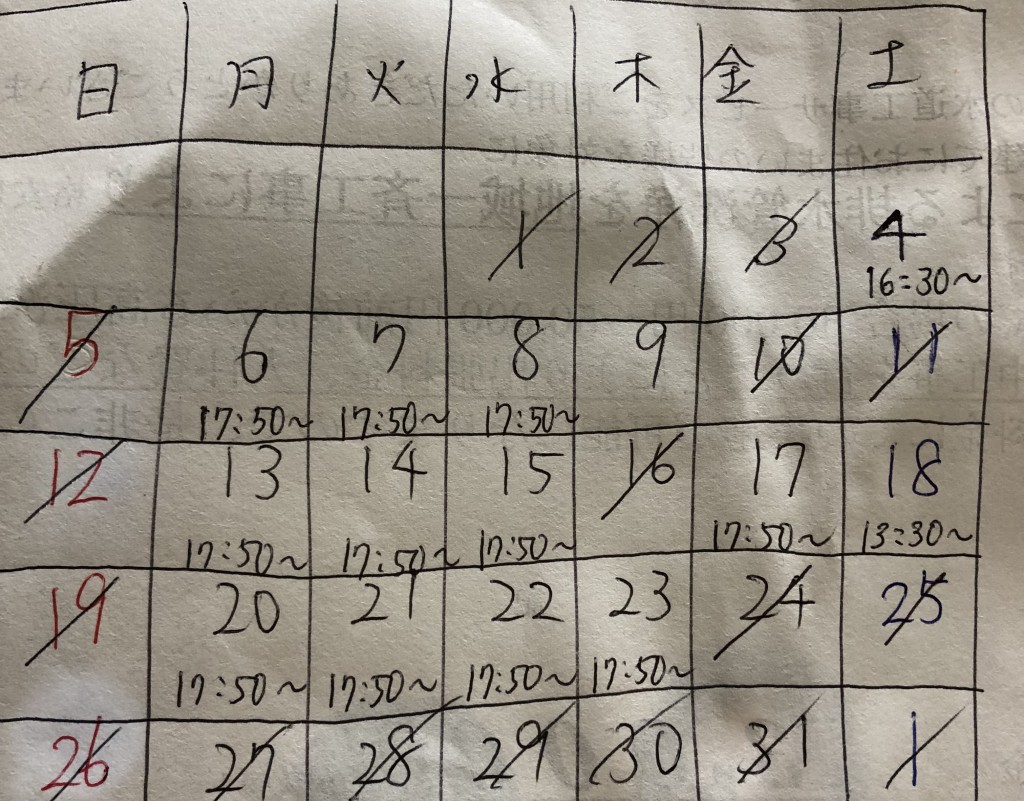 日 月 火 水 木 金 土
1 2 3 4
16:30~
5 6 7 8 9 10 11
17:50~ 17:50~ 17:50~
12 13 14 15 16 17 18
17:50~ 17:50~ 17:50~ 17:50~ 13:30~
19 20 21 22 23 24 25
17:50~ 17:50~ 17:50~ 17:50~
26 27 28 29 30 31 1